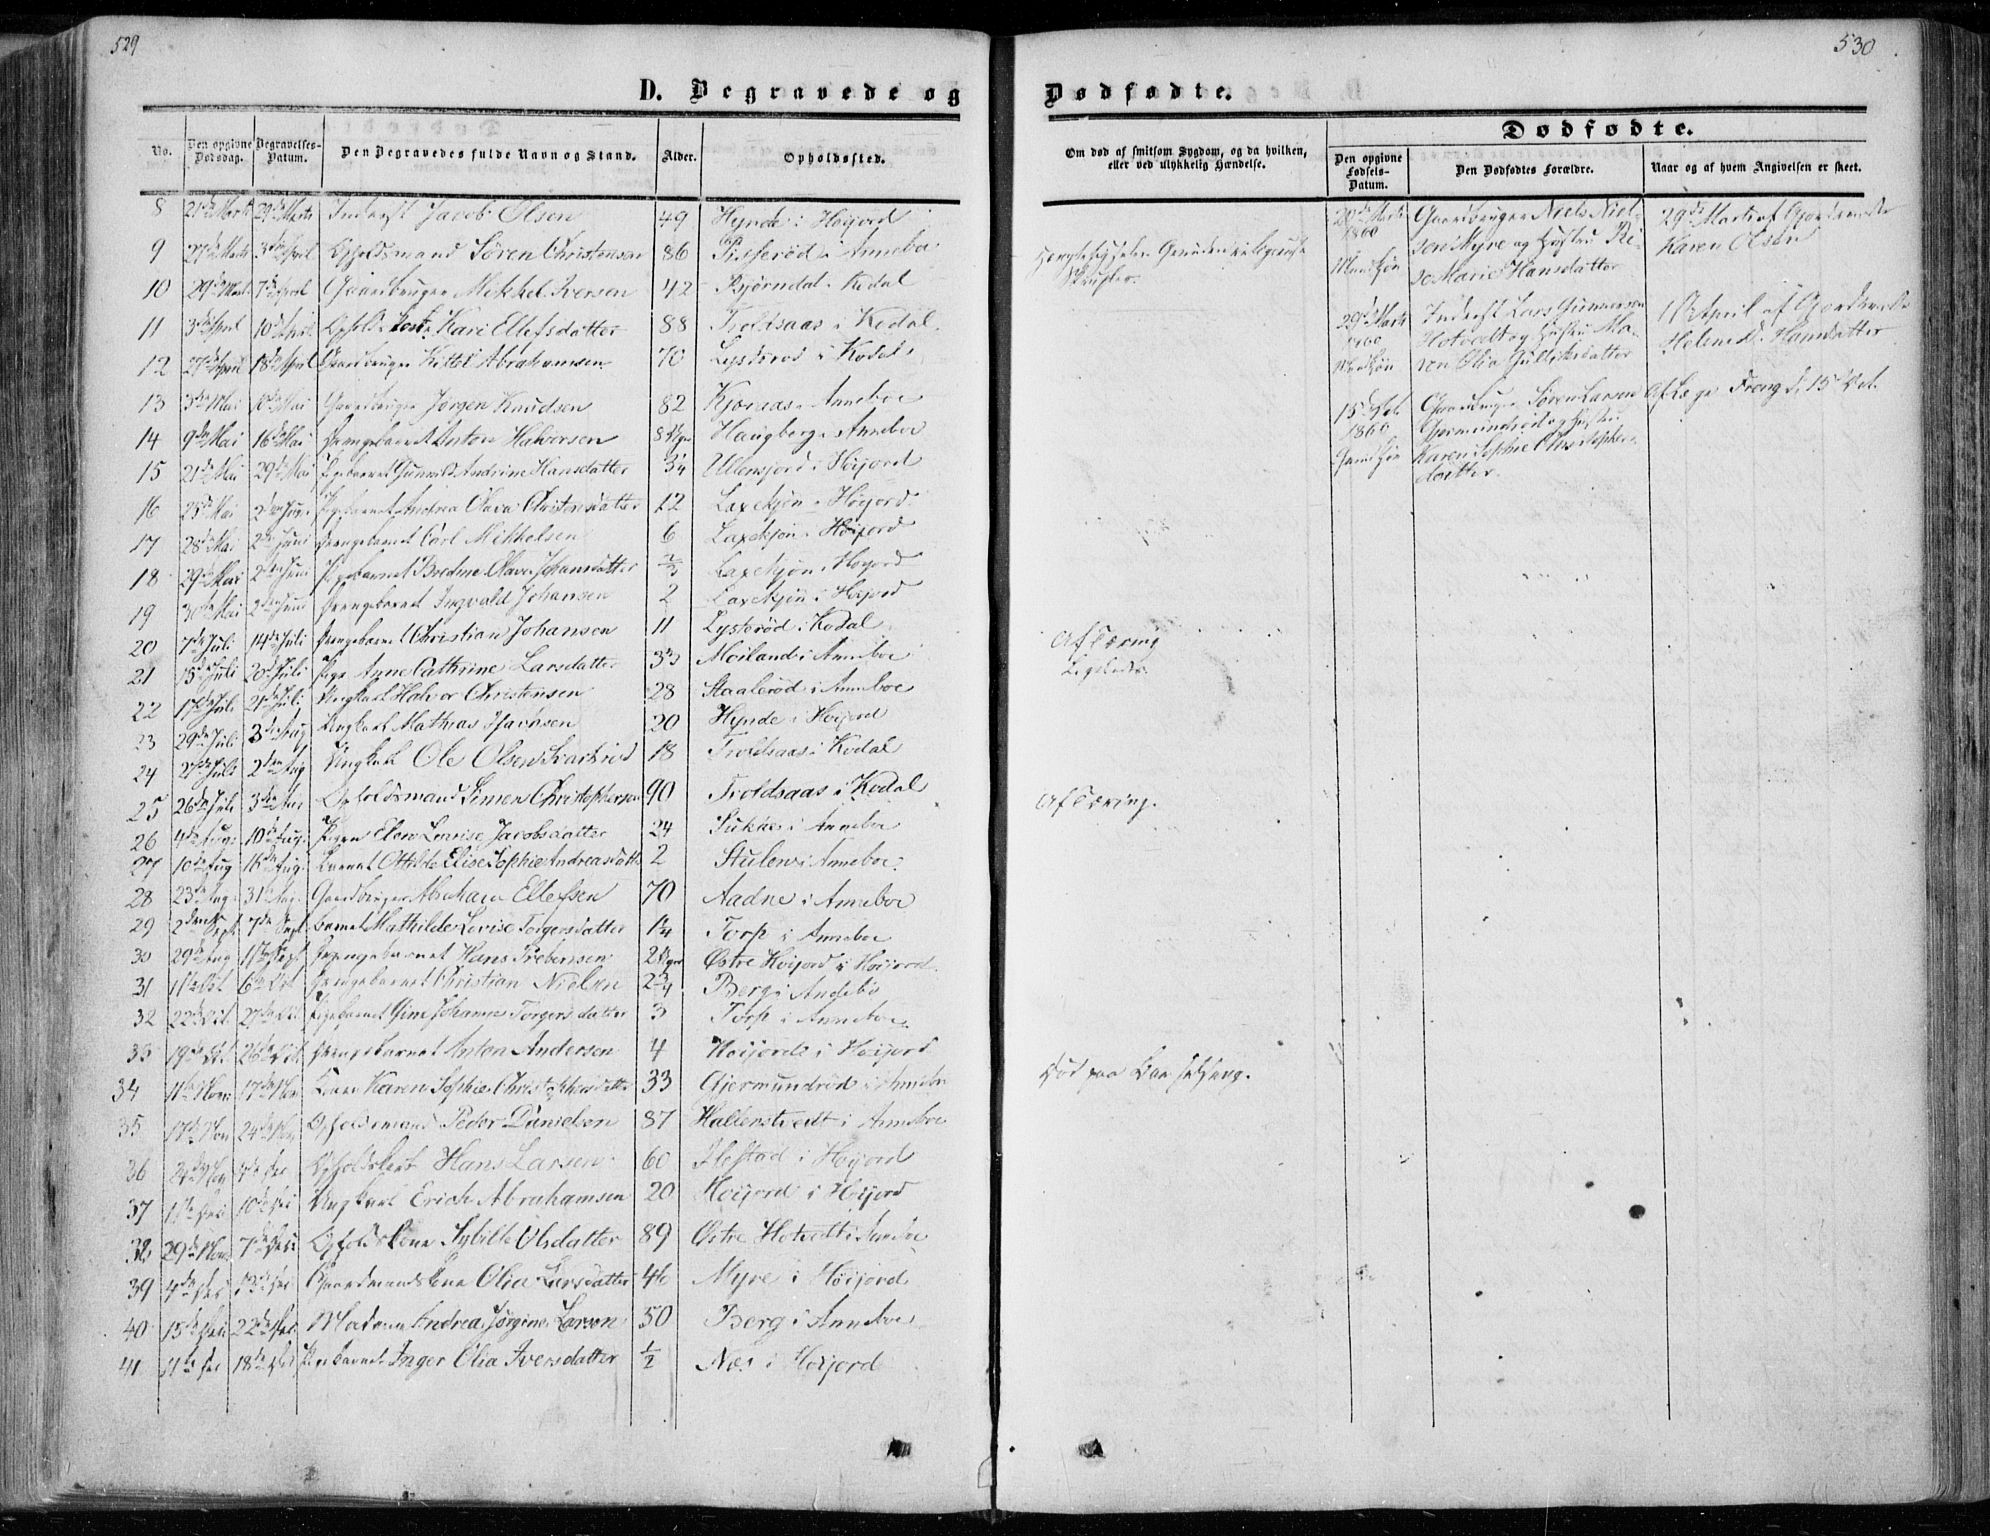 529
530
D. Begravede og
Dødfødte.
No.
Den opgivne Dødsdag.
Begravelses-Datum.
Den Begravedes fulde Navn og Stand.
Alder.
Opholdssted.
Om død af smitsom Sygdom, og da hvilken, eller ved ulykkelig Hændelse.
Dødfødte.
Den opgivne Fødsels-Datum.
Den Dødfødtes Forældre.
Naar og af hvem Angivelsen er skeet.
8 21de Marts 29de Marts Inderst Jacob Olsen 49 Hynde i Høijord
9 27de Marts 3die April Opholdsmand Søren Christensen 86 i Anneboe
10 29de Marts 7de April Gaardbruger Mikkel Iversen 42 Bjørndal i Kodal
11 3die April 10de April Kari Ellefsdatter 88 Troldsaas i Kodal
12 April 18de April Gaardbruger Kittel Abrahamsen 70 Lysterød i Kodal
13 3die Mai 10de Mai Gaardbruger Jørgen Knudsen 82 Kjoraas i Anneboe
14 9de Mai 16de Mai Drengebarnet Anton Halvorsen 8 Uger Haugberg i Anneboe
15 21de Mai 29de Mai Pigebarnet Gunnild Andrine Hansdatter 3/4 i Høijord
16 25de Mai 2den Juni Pigebarnet Andrea Olava Christensdatter 12 Laxekjøn i Høijord
17 28de Mai 2den Juni Drengebarnet Carl Mikkelsen 6 Laxekjøn i Høijord
18 29de Mai 2den Juni Pigebarnet Olava Johansdatter 2/3 Laxekjøn i Høijord
19 30te Mai 2den Juni Drengebarnet Ingvald Johansen 2 Laxekjøn i Høijord
20 7de Juli 14de Juli Drengebarnet Christian Johansen 11 Lysterød i Kodal
21 15de Juli 20de Juli Pige Anne Cathrine Larsdatter 33 Møiland i Anneboe
22 17de Juli Juli Ungkarl Halvor Christensen 28 Staalerød i Anneboe
23 29de Juli 3die Aug Ungkarl Mathias 20 Hynde i Høijord
24 Juli 2den Aug Ungkarl Ole Olsen 18 Troldsaas i Kodal
25 26de Juli 3die Aug Opholdsmand Simen Christophersen 90 Troldsaas i Kodal
26 4de Aug. 10de Aug. Pigen Elen Lovise Jacobsdatter 24 i Anneboe
27 10de Aug 16de Aug. Barnet Othilde Elise Sophie Andreasdatter 2 Stulen i Anneboe
28 23de Aug. 31te Aug. Gaardbruger Abraham Ellefsen 70 Aadne i Anneboe
29 2den Sept 7de Sept Barnet Mathilde Lovise Torgersdatter 1 1/4 Torp i Anneboe
30 29de Aug Sept Drengebarnet Hans Prebensen 2 Uger Østre Høijord i Høijord
31 Oct 6te Oct Drengebarnet Christian Nielsen 2 3/4 Berg i Andebo
32 22de Oct. 27de Oct. Pigebarnet Gine Johanne Torgersdatter 3 Torp i Anneboe
33 19de Oct. 26de Oct. Drengebarnet Anton Andersen 4 Høijord i Høijord
34 11te Novb 17de Nov Kone Karen Sophie Christophersdatter 33 Gjermundrød i Anneboe
35 17de Nov 24de Nov Opholdsmand Peder Danielsen 87 Hallenstvedt i Anneboe
36 Nov Dec Opholdskarl Hans Larsen 60 Ilestad i Høijord
37 Dec 10de Dec Ungkarl Erich Abrahamsen 20 Høijord i Høijord
38 29de Nov. 7de Dec. Opholdskone Sybille Olsdatter 89 Østre Hotvedt i Anneboe
39 4de Dec 13de Dec Gaardmandskone Olia Larsdatter 46 Myre i Høijord
40 15de Dec 22de Dec Madame Andrea Jørgine Larsen 50 Berg i Anneboe
41 11te Dec 18de Dec Pigebarnet Inger Olia Iversdatter 1/2 Næs i Høijord
Af Tæring
Ligeledes
Af Tæring.
Død paa Barselseng.
29de Marts 1860
Gaardbruger Niels Nielsen Myre og Hustru
Marie Hansdatter
29de Marts af Gjordemoder
Karen Olsen
29de Marts 1860
Inderst Lars Gunnersen
Hotvedt og Hustru Maren Olia Gulliksdatter
April af Gjordemoder
Helene D. Hansdatter
15de Oct. 1860
Gaardbruger Søren Larsen
Gjermundrød og Hustru
Karen Sophie Christophersdatter
Af Læge Prong d. 15 Oct.